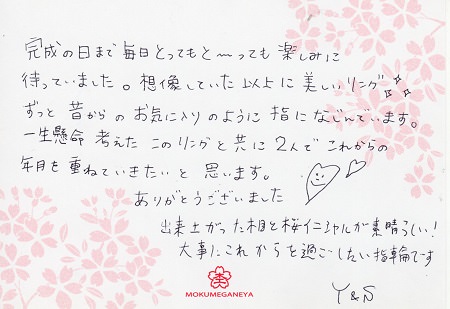 完成の日まで毎日とってもと〜っても楽しみに
待っていました。想像していた以上に美しいリング
ずっと昔からのお気に入りのように指になじんでいます。
一生懸命考えたこのリングと共に2人でこれからの
年月を重ねていきたいと思います。
ありがとうございました
出来上がった木目と桜イニシャルが素晴らしい!
大事にこれからを過ごしたい指輪です
MOKUMEGANEYA
Y&S